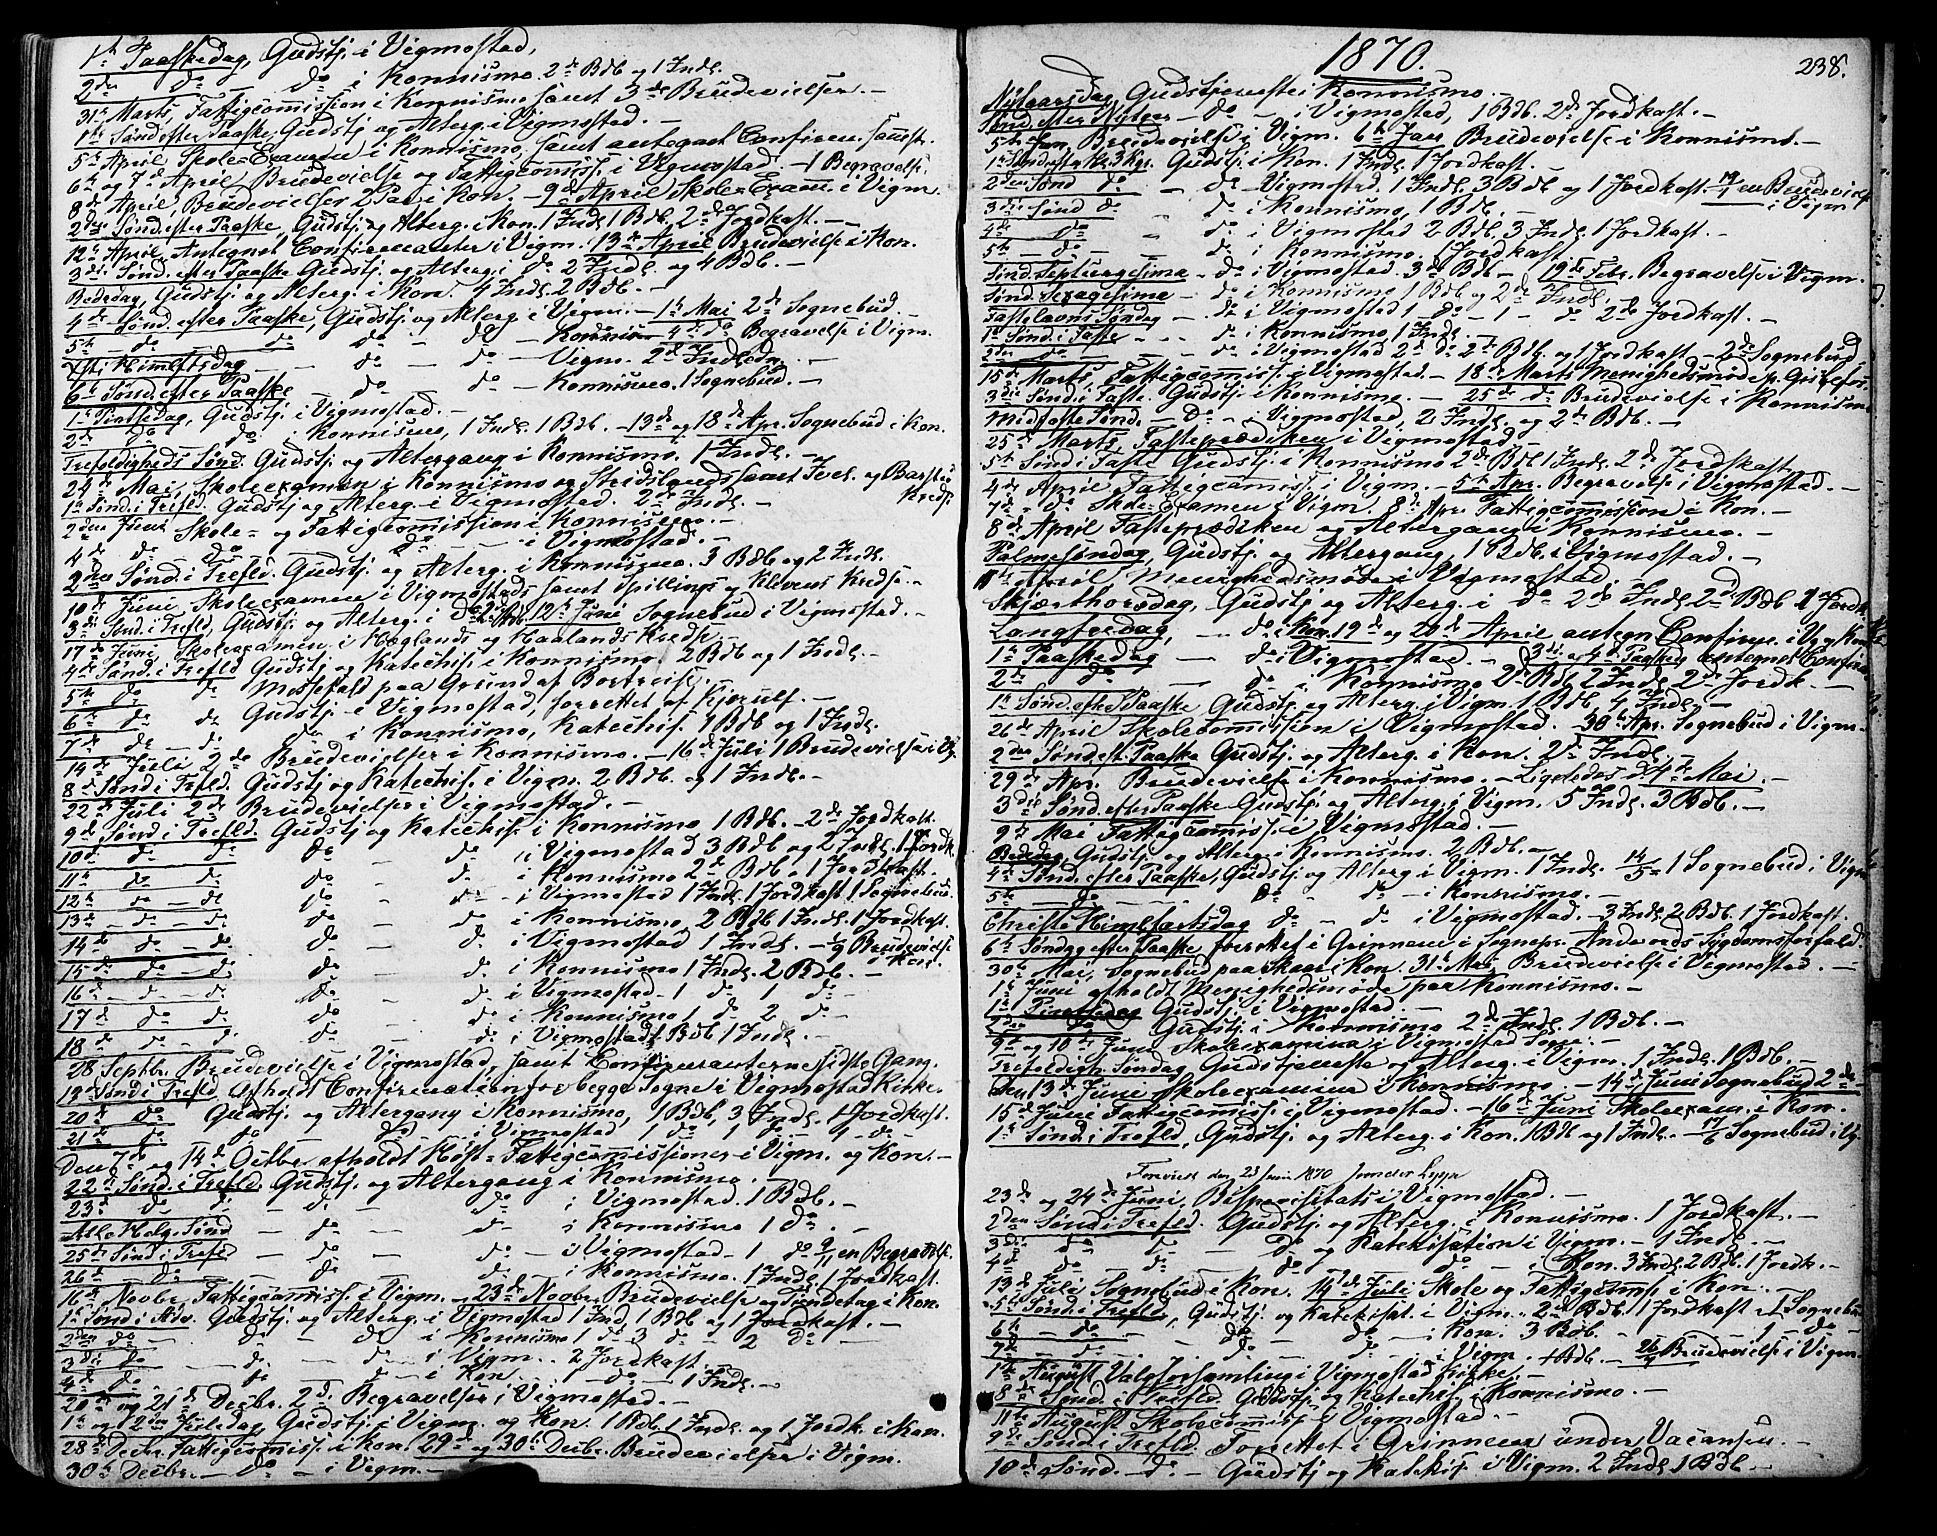 1ste Paaskedag, Gudstj. i Vigmostad,
2den do - do i Konnismo. 2de Bdb og 1 Indl.
31te Marts, Fattigcomission i Konnismo samt 3de Brudevielser. -
1ste Sønd. efter Paaske, Gudstj. og Alterg. i Vigmostad. -
5te April Skole-Examen i Konnismo, samt antegnet Confirm. samst.
6te og 7de April Brudevielse og Fattigcomiss. i Vigmostad. - 1 Begravelse.
8de April, Brudevielser 2 Par i Kon. - 9de April Skole-Exam. i Vigm.
2den Sønd. efter Paaske, Gudstj. og Alterg. i Kon. 1 Indl. 1 Bdb. 2de Jordkast. -
12te April, Antegnet Confirmanter i Vigm. 13de April Brudevielse i Kon.
3die Sønd. efter Paaske Gudstj. og Alterg. i do 2 Indl. og 4 Bdb. -
Bededag, Gudstj. og Alterg. i Kon. 4 Indl. 2 Bdb. -
4de Sønd. efter Paaske, Gudstj. og Alterg. i Vigm. - 1ste Mai 2de Sognebud.
5te - do - do - do - Konnismo 4de do Begravelse i Vigm.
Xsti Himelftsdag - do - do - Vigm. 2de Indledn. -
6te Sønd. efter Paaske do do - Konnismo. 1 Sognebud. -
1ste Pintsedag, Gudstj. i Vigmostad. -
2den do do i Konnismo, 1 Indl. 1 Bdb. - 13de og 18de Apr. Sognebud i Kon.
Trefoldigheds Sønd. Gudstj. og Altergang i Konnismo. 1 Indl. -
24de Mai, Skoleexamen i Konnismo og Stridslands samt Ivel. og Barstad Kreds.
1ste Sønd. i Trefld. Gudstj. og Alterg. i Vigmostad. 2de Indl. -
2den Juni Skole- og Fattigcomission i Konnismo. -
4de do do do - i Vigmostad. -
2den Sønd. i Trefld. Gudstj. og Alterg. i Konnismo. 3 Bdb og 2 Indl.
10de Juni, Skoleexamen i Vigmostads samt Spillings og Klevens Kredse. -
3die Sønd. i Trefld, Gudstj. og Alterg. i do 12te Juni Sognebud i Vigmostad. -
17de Juni Skoleexamen i Høglands og Haalands Kreds. -
4de Sønd. i Trefld Gudstj. og Katechis. i Konnismo. 2 Bdb og 1 Indl. -
5te do do Messefald paa Grund af Bortreise. -
6te do do Gudstj. i Vigmostad, forrettet af Kjerulf. -
7de do - do do i Konnismo, Katechis. 1 Bdb og 1 Indl.
14de Juli 2de Brudevielser i Konnismo. - 16de Juli 1 Brudevielse i Vg.
8de Sønd i Trefld. Gudstj. og Katechis. i Vigm. 2 Bdb. og 1 Indl. -
22de Juli 2de Brudevielser i Vigmostad. -
9de Sønd i Trefld. Gudstj og Katechis. i Konnismo 1 Bdb. - 2de Jordkast.
10de do do do - do i Vigmostad 3 Bdb og 2 Indl. 1 Jordk.
11te do do do - do i Konnismo 2de Bdb. 1 Jordkast.
12te - do - do do - do - i Vigmostad 1 Indl. 1 Jordkast 1 Sognebud.
13de - do - do do - do i Konnismo, 2 Bdb 1 Indl. 1 Jordkast.
14de - do - do do - do i Vigmostad 1 Indl. - Brudevielse i Kon.
15de - do - do do - do i Konnismo 1 Indl. 2 Bdb. -
16de - do - do do - do i Vigmostad - 1 do 1 do -
17de do do do - do i Konnismo 1 do 2 do -
18de do - do do - do i Vigmostad 1 Bdb 1 Indl. -
28 Septbr. Brudevielse i Vigmostad, samt Confirmanternes sidste Gang.
19de Sønd i Trefld. Afholdt Confirmation for begge Sogne i Vigmostad Kirke.
20de do Gudstj. og Altergang i Konnismo, 1 Bdb, 3 Indl. 1 Jordkast.
21de do do do i Vigmostad 1 do 1 do 4 do -
Den 7de og 14de Octbr. afholdt Høst-Fattigcomissioner i Vigm. og Kon. -
22de Sønd. i Trefld. Gudstj. og Altergang i Konnismo. -
23de do do - do - do i Vigmostad. 1 Bdb. -
Alle Helg. Sønd - do - do i Konnismo 1 do. -
25de Sønd i Trefld - do - do - i Vigmostad - 1 do 9/11 en Begravelse.
26de do - do - do i Konnismo. 1 Indl. 1 Jordkast.
16de Novbr. Fattigcomiss. i Vigm. - 23de Novbr. Brudevielse og Tiendetag i Kon.
1ste Sønd i Adv. Gudstj. og Alterg. i Vigmostad 1 Ind, 1 Bdb og 1 Jordkast. -
2den do - do - do i Konnismo 1 do 3 do - 2 do -
3die do - do - do - i Vigm.. 2 Jordkast. -
4de do - do - do i Kon. 1 - do - 1 Indl. -
20de og 21de Decbr. 2de Begravelser i Vigmostad. -
1ste og 2den Juledag Gudstj. i Vigm. og Kon. 1 Bdb. 1 Indl. og 1 Jordk. i Kon.
28de Decbr. Fattigcomiss. i Kon. 29de og 30te Decbr. Brudevielser i Vigm.
30te Decbr. - do - i Vigm. -
1870.
238.
Nytaarsdag, Gudstjeneste i Konnismo. -
Sønd. efter Nytaar - do - i Vigmostad, 1 Bdb. 2de Jordkast. -
5te Jan. Brudevielse i Vigm. 6te Jan Brudevielse i Konnismo. -
1ste Sønd. efter H. 3 Kgr. Gudstj. i Kon. 1 Indl. 1 Jordkast.
2den Sønd do - do - Vigmostad. 1 Indl. 3 Bdb og 1 Jordkast. 19/1 en Brudevielse i Vigm
3die Sønd do - do i Konnismo, 1 Bdb. -
4de do - do i Vigmostad 2 Bdb. 3 Indl. 1 Jordkast. -
5te - do - - do i Konnismo, 1 Jordkast. -
Sønd. Septuagesima - do i Vigmostad. 3de Bdb - 19de Febr. Begravelse i Vigm.
Sønd. Sexagesima - do i Konnismo 1 Bdb og 2de Indl.
Fastelavns Søndag - do i Vigmostad 1 - do - 1 - do 2de Jordkast. -
1ste Sønd. i Faste - - do i Konnismo, 1 Indl. -
2den do - - do i Vigmostad 2 do 2de Bdb. og 1 Jordkast - 2de Sognebud
15de Marts, Fattigcomiss. i Vigmostad. - 18de Marts Menighedsmøde p. Grislefos.
3die Sønd. i Faste. Gudstj. i Konnismo. - 25de do Brudevielse i Konnismo
Midfaste Sønd. - do - i Vigmostad, 2 Indl. og 2de Bdb. -
25de Marts Fasteprædiken i Vigmostad -
5te Sønd. i Faste Gudstj. i Konnismo 2de Bdb 1 Indl. 2de Jordkast
4de April Fattigcomiss. i Vigm. - 5te Apr. Begravelse i Vigmostad. -
7de - do Skole-Examen i Vigm. 8de Apr. Fattigcomission i Kon. -
8de April Fasteprædiken og Altergang i Konnismo. -
Palmesøndag, Gudstj. og Altergang, 1 Bdb. i Vigmostad. -
11te April Menighedsmøde i Vigmostad. -
Skjærthorsdag, Gudstj. og Alterg. i do 2de Indl. 2de Bdb 2 Jordk.
Langfredag, - do i Kon. 19de og 20de April antegn. Confirm. i V. og Kon.
1ste Paaskedag - do i Vigmostad. - 3die og 4de Paasked. antegnet Confirm.
2den do do i Konnismo 2de Bdb 2 Indl. 2de Jordk. -
1ste Sønd. efter Paaske Gudstj. og Alterg. i Vigm. 1 Bdb, 4 Indl. -
26de April Skolecomission i Vigmostad. - 30te Apr. Sognebud i Vigm. -
2den Sønd. ef. Paaske Gudstj. og Alterg. i Kon. 2de Indl.
29de Apr. Brudevielse i Konnismo. - Ligeledes d. 4de Mai. -
3die Sønd. efter Paaske Gudstj. og Alterg. i Vigm. 5 Indl. 3 Bdb. -
9de Mai Fattigcomiss. i Vigmostad. -
Bededag, Gudstj. og Alterg. i Konnismo. 2 Bdb. -
4de Sønd. efter Paaske, Gudstj. og Alterg. i Vigm. 1 Indl. 14/5 - 1 Sognebud i Vigm
5te - do - do - do - i Konnismo. -
Christi Himelfartsdag do - do i Vigmostad. - 3 Indl. 2 Bdb. 1 Jordkast. -
6te Søndag efter Paaske, forrettet i Grinnem i Sognepr. Anderods Sygdomsforfald
30te Mai, Sognebud paa Skaar i Kon. 31te Mai, Brudevielse i Vigmostad. -
1ste Juni afholdt Menighedsmøde paa Konnismo. -
1ste Pintsedag Gudstj. i Vigmostad
2den do Gudstj. i Konnismo 2de Indl. 1 Bdb. -
9de og 10de Juni Skoleexamina i Vigmostad Sogn. -
Trefoldigh. Søndag Gudstjeneste og Alterg. i Vigm. 1 Indl. 1 Bdb. -
Den 13de Juni Skoleexamina i Konnismo. - 14de Juni Sognebud 2de
15de Juni Fattigcomiss. i Vigmostad. - 16de Juni Skoleexam. i Kon.
1ste Sønd. i Trefld, Gudstj. og Alterg. i Kon. 1 Bdb og 1 Indl. - 17/6 Sognebud i Vg.
den 23 Juni 1870
23de og 24de Juni, Bispevisitats i Vigmostad. -
2den Sønd i Trefld. Gudstj. og Alterg. i Konnismo. 1 Jordkast. -
3die do do - do og Katekisation i Vigm. - 1 Indl. -
4de do do - do do - i Kon. 3 Indl. 2 Bdb. 1 Jordk. -
13de Juli Sognebud i Kon. 14de Juli Skole og Fattigcoms. i Kon. -
5te Sønd i Trefld, Gudstj. og Katekisat. i Vigm. 2de Bdb. 1 Jordkast - 1 Sognebud
6te - do - do do - i Kon. 3 Bdb. - 1 - do -
7de - do - do - do - i Vigm. 4 Bdb. - 26/7 Brudevielse i Vigm.
1ste August Valgforsamling i Vigmostad Kirke. -
8de Sønd. i Trefld. Gudstj. og Katechis. i Konnismo. -
11te August Skolecomiss. i Vigmostad. -
9de Sønd. i Trefld. Forrettet i Grinnem under Vacansen. -
10de Sønd. - do - Gudstj og Katekis. i Vigm. 2 Indl 1 Bdb -